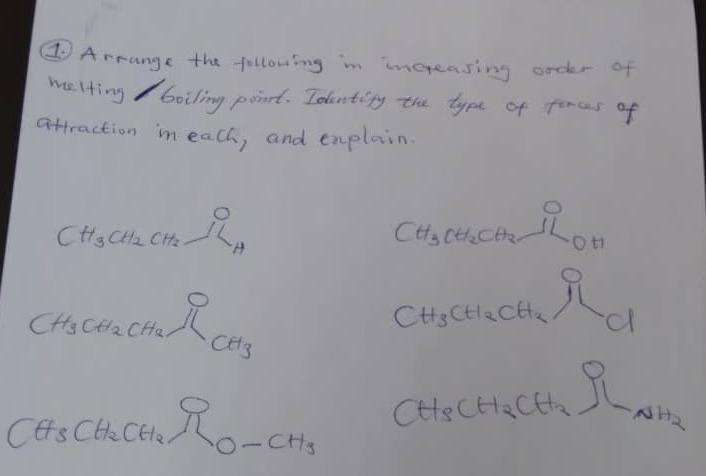 1. Arrange the following in increasing order of
melting / boiling point. Identify the type of forces of
attraction in each, and explain.
O
CH3CH2CH2 H
O
CH3CH2CH2 OH
O
CH3CH2CH2 CH3
O
CH3CH2CH2 Cl
O
CH3CH2CH2 O-CH3
O
CH3CH2CH2 NH2